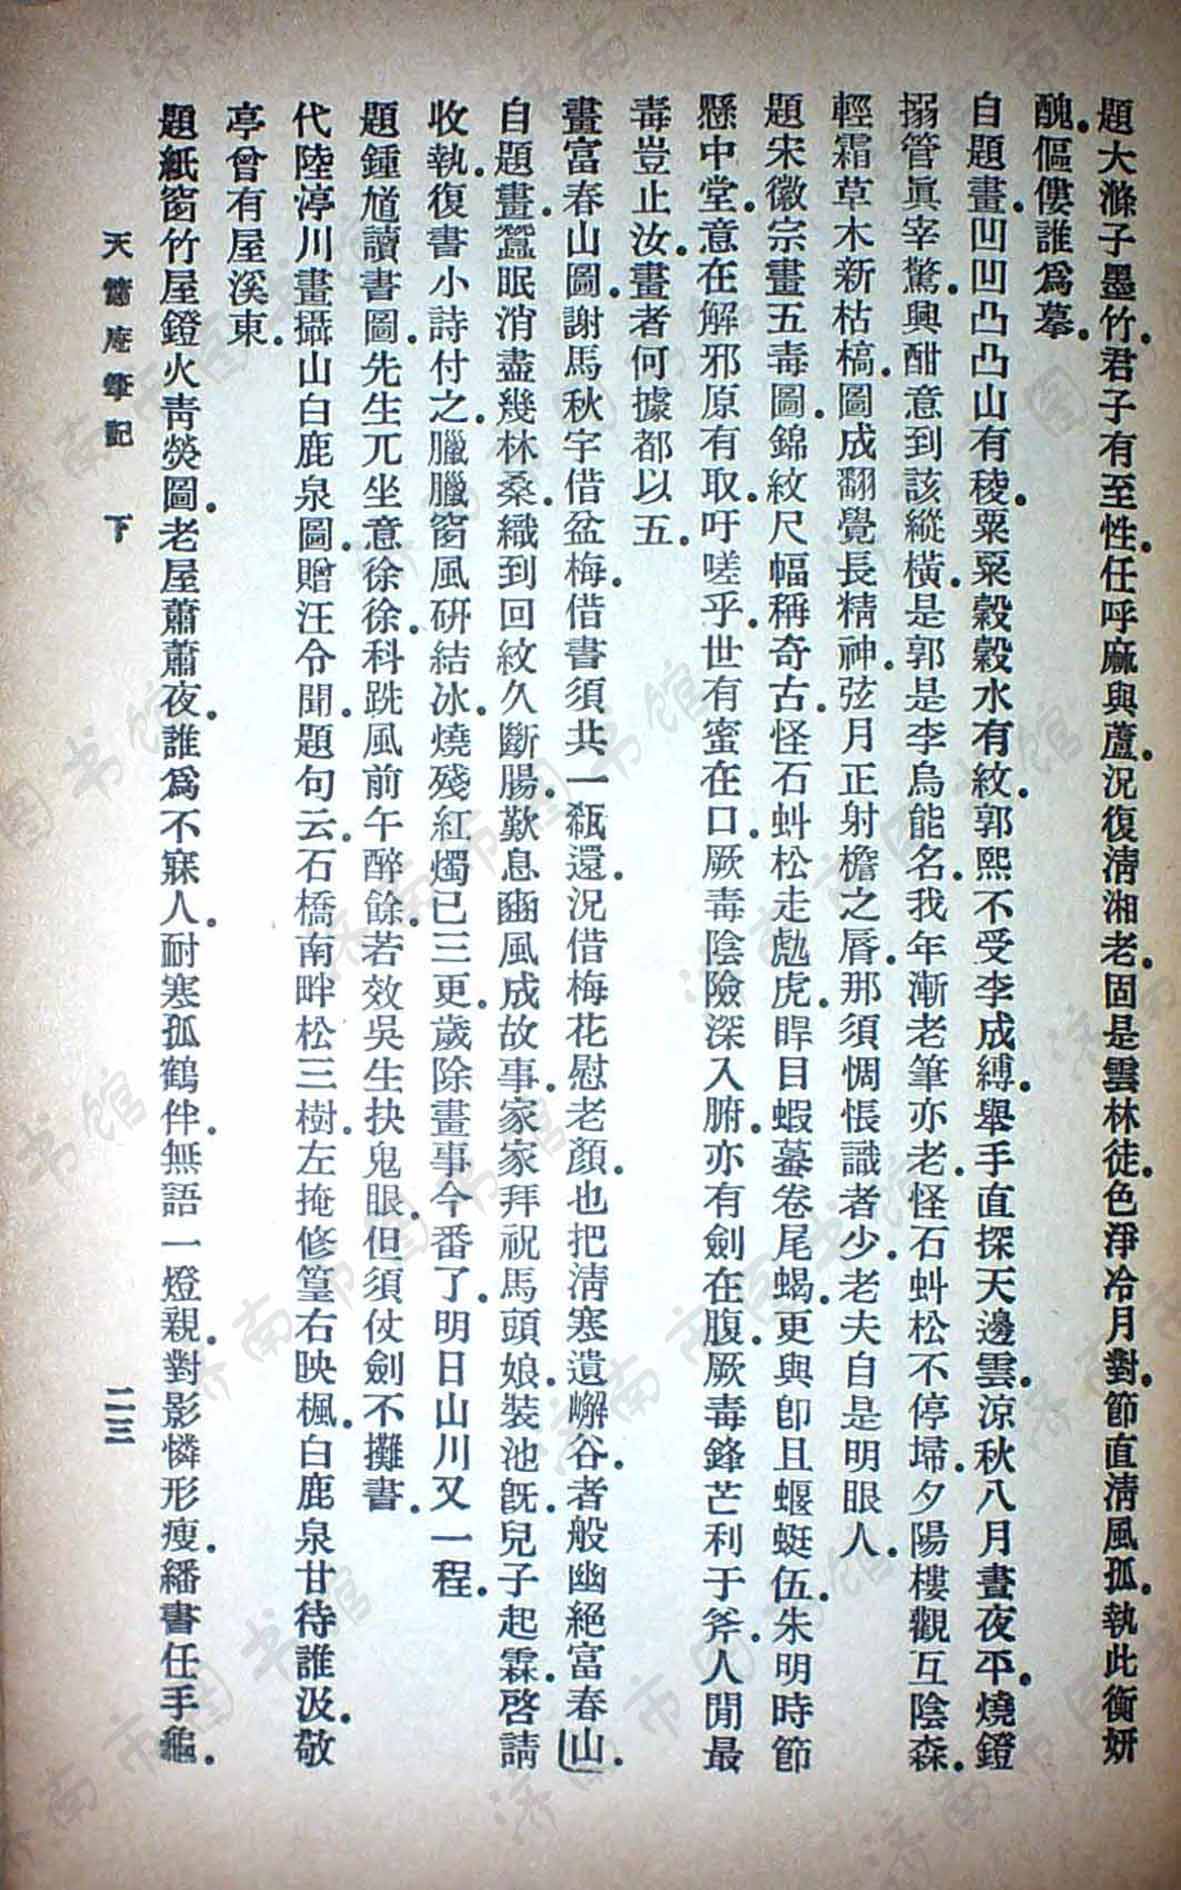 題大滌子墨竹。君子有至性。任呼麻與蘆。況復淸湘老。固是雲林徒。色淨冷月對。節直淸風孤。執此衡妍
醜。傴僂誰爲摹。
自題畫。凹凹凸凸山有稜。粟粟縠縠水有紋。郭熙不受李成縛。舉手直探天邊雲。涼秋八月晝夜平。燒鐙
搦管眞宰驚。興酣意到該縱橫。是郭是李烏能名。我年漸老筆亦老。怪石虯松不停埽。夕陽樓觀互陰森。
輕霜草木新枯槁。圖成翻覺長精神。弦月正射檐之脣。那須惆悵識者少。老夫自是明眼人。
題宋徽宗畫五毒圖。錦紋尺幅稱奇古。怪石虯松走彪虎。睅目蝦蟇卷尾蝎。更與卽且蝘蜓伍。朱明時節
懸中堂。意在解邪原有取。吁嗟乎。世有蜜在口。厥毒陰險深入腑。亦有劍在腹。厥毒鋒芒利于斧。人閒最
毒豈止汝。畫者何據都以五。
畫富春山圖。謝馬秋宇借盆梅。借書須共一瓻還。況借梅花慰老顏。也把淸寒遺嶰谷。者般幽絕富春山。
自題畫。蠶眠消盡幾林桑。織到回紋久斷腸。歎息豳風成故事。家家拜祝馬頭娘。裝池旣。兒子起霖。啓請
收執。復書小詩付之。臘臘窗風硏結冰。燒殘紅燭已三更。歲除畫事今番了。明日山川又一程。
題鍾馗讀書圖。先生兀坐意徐徐。科跣風前午醉餘。若效吳生抉鬼眼。但須仗劍不攤書。
代陸渟川畫攝山白鹿泉圖。贈汪令聞。題句云。石橋南畔松三樹。左掩修篁右映楓。白鹿泉甘待誰汲。敬
亭曾有屋溪東。
題紙窗竹屋鐙火靑熒圖。老屋蕭蕭夜。誰爲不寐人。耐寒孤鶴伴。無語一燈親。對影憐形瘦。繙書任手龜。
天慵庵筆記　下　二三
济南市图书馆